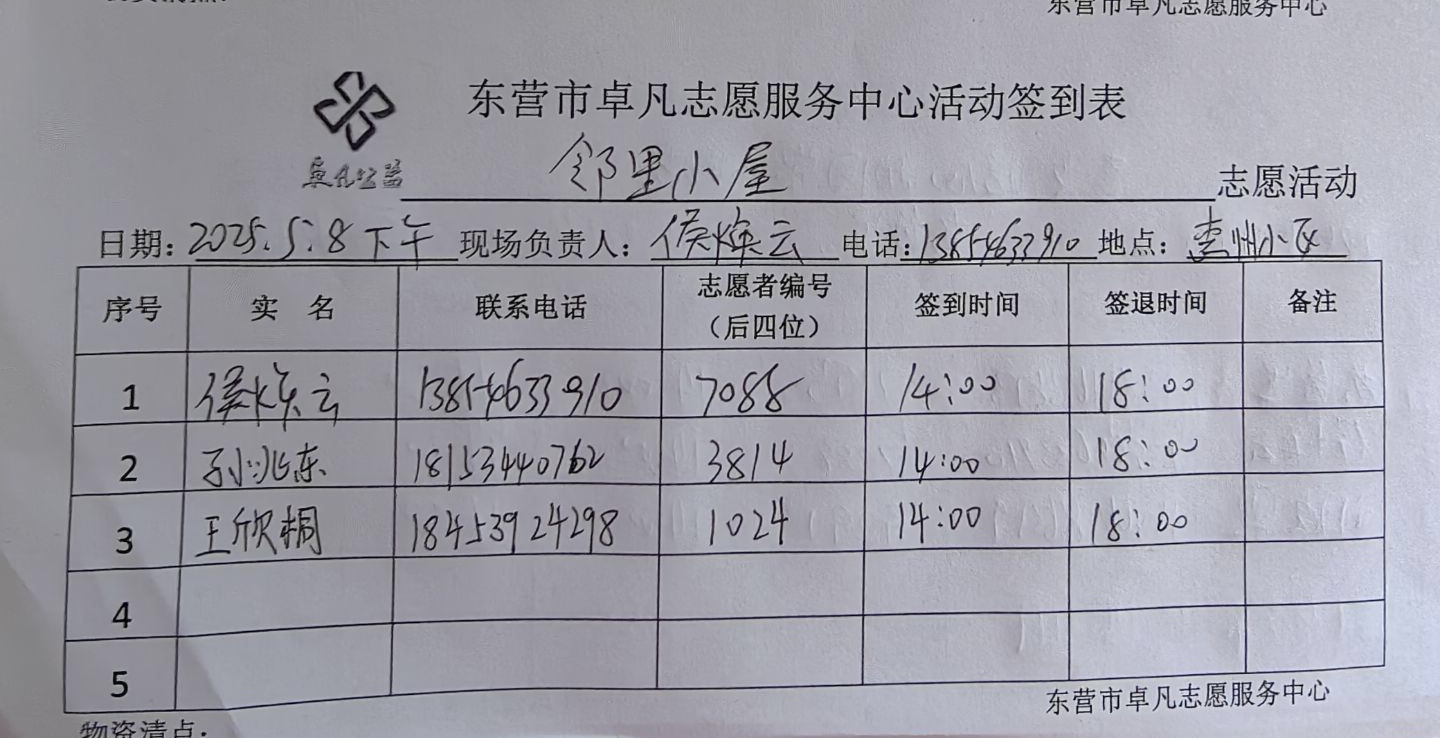 东营市卓凡志愿服务中心
东营市卓凡志愿服务中心活动签到表
卓凡公益
邻里小屋 志愿活动
日期：2025.5.8下午 现场负责人：侯焕云 电话：13854633910 地点：小区
序号 实 名 联系电话 志愿者编号（后四位） 签到时间 签退时间 备注
1 侯焕云 13854633910 7088 14:00 18:00
2 孙兆东 18153440762 3814 14:00 18:00
3 王欣桐 18453924298 1024 14:00 18:00
4
5
东营市卓凡志愿服务中心
物资清点：